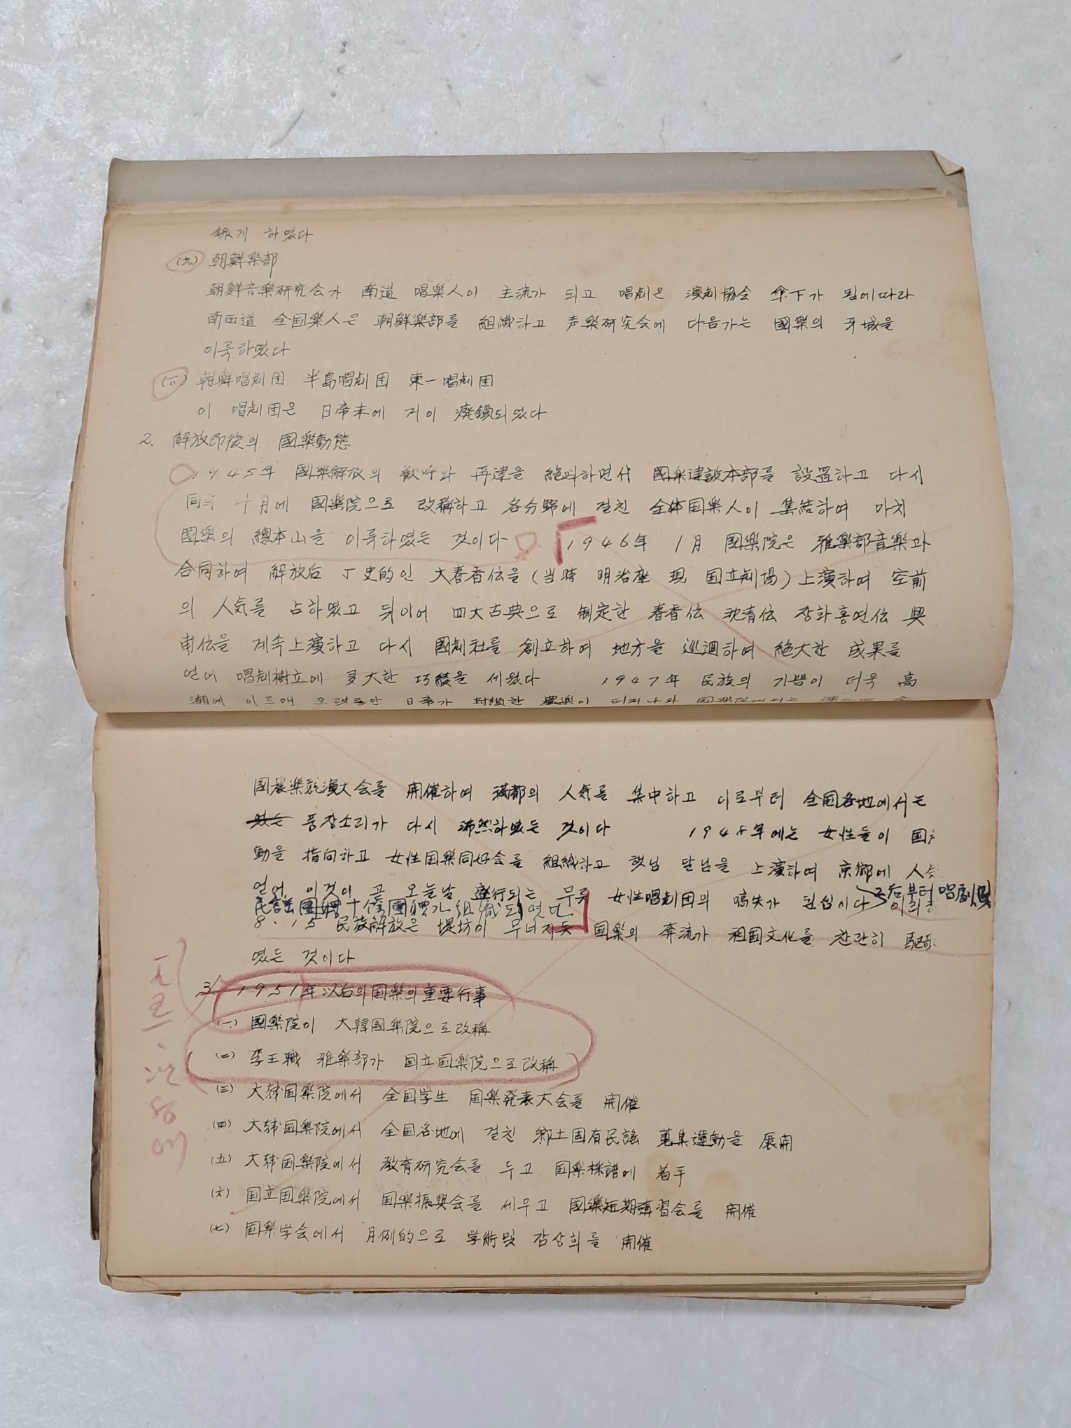 하였다
(九) 朝鮮樂部
朝鮮音樂硏究会가 南道 唱樂人이 主流가 되고 唱劇은 演劇協会 傘下가 됨에따라
南田道 全国樂人은 朝鮮樂部를 組織하고 声樂硏究会에 다음가는 國樂의 牙城을
이룩하였다
朝鮮唱劇団 半島唱劇団 東一唱劇団
이 唱劇団은 日帝末에 거이 廢鎖되였다
2. 解放即後의 國樂動態
1945年 國樂解放의 歡呼와 再建을 絶叫하면서 國樂建設本部를 設置하고 다시
同年 十月에 國樂院으로 改稱하고 各分野에 걸친 全体国樂人이 集結하여 마치
國樂의 總本山을 이룩하였든 것이다 1946年 1月 國樂院은 雅樂部音樂과
合同하여 解放后 丁史的인 大春香伝을 (当時 明治座 現 国立劇場) 上演하여 空前
의 人気를 占하였고 뒤이어 四大古典으로 制定한 春香伝 沈淸伝 장화홍연伝 興
甫伝을 계속上演하고 다시 國劇社를 創立하여 地方을 巡廻하여 絶大한 成果를
얻어 唱劇樹立에 多大한 巧績을 세웠다 1947年 民族의 기쁨이 더욱 高
潮에 이르매 오랫동안 日帝가 封鎖한 農樂이
國農樂競演大会를 開催하여 滿都의 人気를 集中하고 이로부터 全国各地에서는
풍장소리가 다시 沛然하였든 것이다 1948年에는 女性들이 国
動을 指向하고 女性国樂同好会를 組織하고 햇님 달님을 上演하여 京鄕에 人
얻어 이것이 곧 오늘날 盛行되는 무릇 女性唱劇団의 嚆矢가 된심이다 그后부터 唱劇
民謠 国樂 十億國樂가 組織되였다
8·15 民族解放은 堤坊이 무너지듯 国樂의 奔流가 祖国文化를 찬란히
였든 것이다
3. 1951年以后의 国樂의 重要行事
(一) 國樂院이 大韓國樂院으로 改稱
(二) 李王職 雅樂部가 国立国樂院으로 改稱
(三) 大韓国樂院에서 全国学生 国樂発表大会를 開催
(四) 大韓国樂院에서 全国各地에 걸친 鄕土固有民謠 蒐集運動을 展開
(五) 大韓国樂院에서 敎育硏究会를 두고 国樂採譜에 着手
(六) 国立国樂院에서 国樂振興会를 세우고 國樂短期講習会를 開催
(七) 国樂学会에서 月例的으로 学術및 감상회를 開催